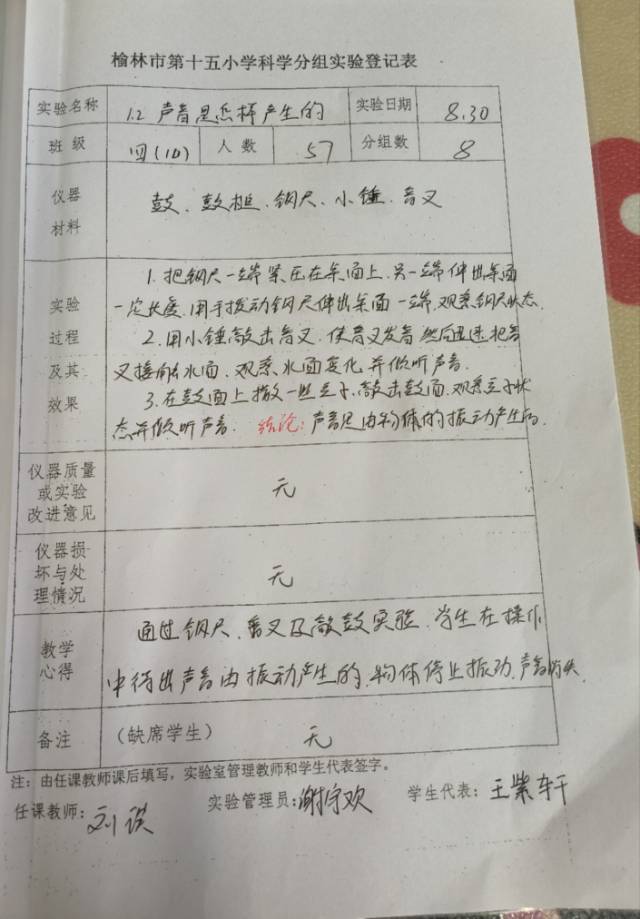 榆林市第十五小学科学分组实验登记表
实验名称 1.2 声音是怎样产生的 实验日期 8.30
班级 四(10) 人数 57 分组数 8
仪器材料 鼓、鼓槌、钢尺、小锤、音叉
实验过程及其效果
1. 把钢尺一端紧压在桌面上,另一端伸出桌面
一定长度,用手拨动钢尺伸出桌面一端,观察钢尺状态.
2. 用小锤敲击音叉,使音叉发音 然后迅速把音
叉接触水面、观察水面变化并倾听声音.
3. 在鼓面上撒一些豆子,敲击鼓面,观察豆子状
态并倾听声音. 结论:声音是由物体的振动产生的
仪器质量或实验改进意见 无
仪器损坏与处理情况 无
教学心得
通过钢尺、音叉及敲鼓实验,学生在操作
中得出声音由振动产生的,物体停止振动,声音消失
备注 (缺席学生) 无
注:由任课教师课后填写,实验室管理教师和学生代表签字。
任课教师: 刘 实验管理员: 谢宁欢 学生代表: 王紫轩